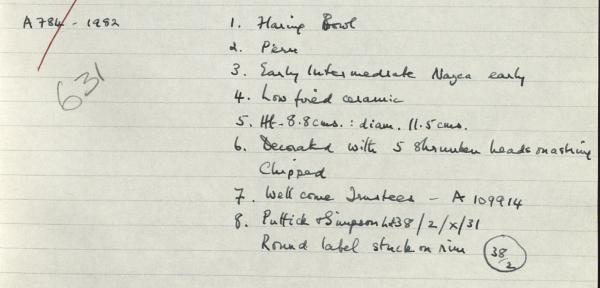 A 784 - 1982
631
1. Flaring Bowl
2. Peru
3. Early Intermediate Nazca early
4. Low fired ceramic
5. Ht - 8.8 cms. : diam. 11.5 cms.
6. Decorated with 5 shrunken heads on a string
Chipped
7. Wellcome Trustees - A 109914
8. Puttick & Simpson Lot 38/2/x/31
Round label stuck on rim 38/2